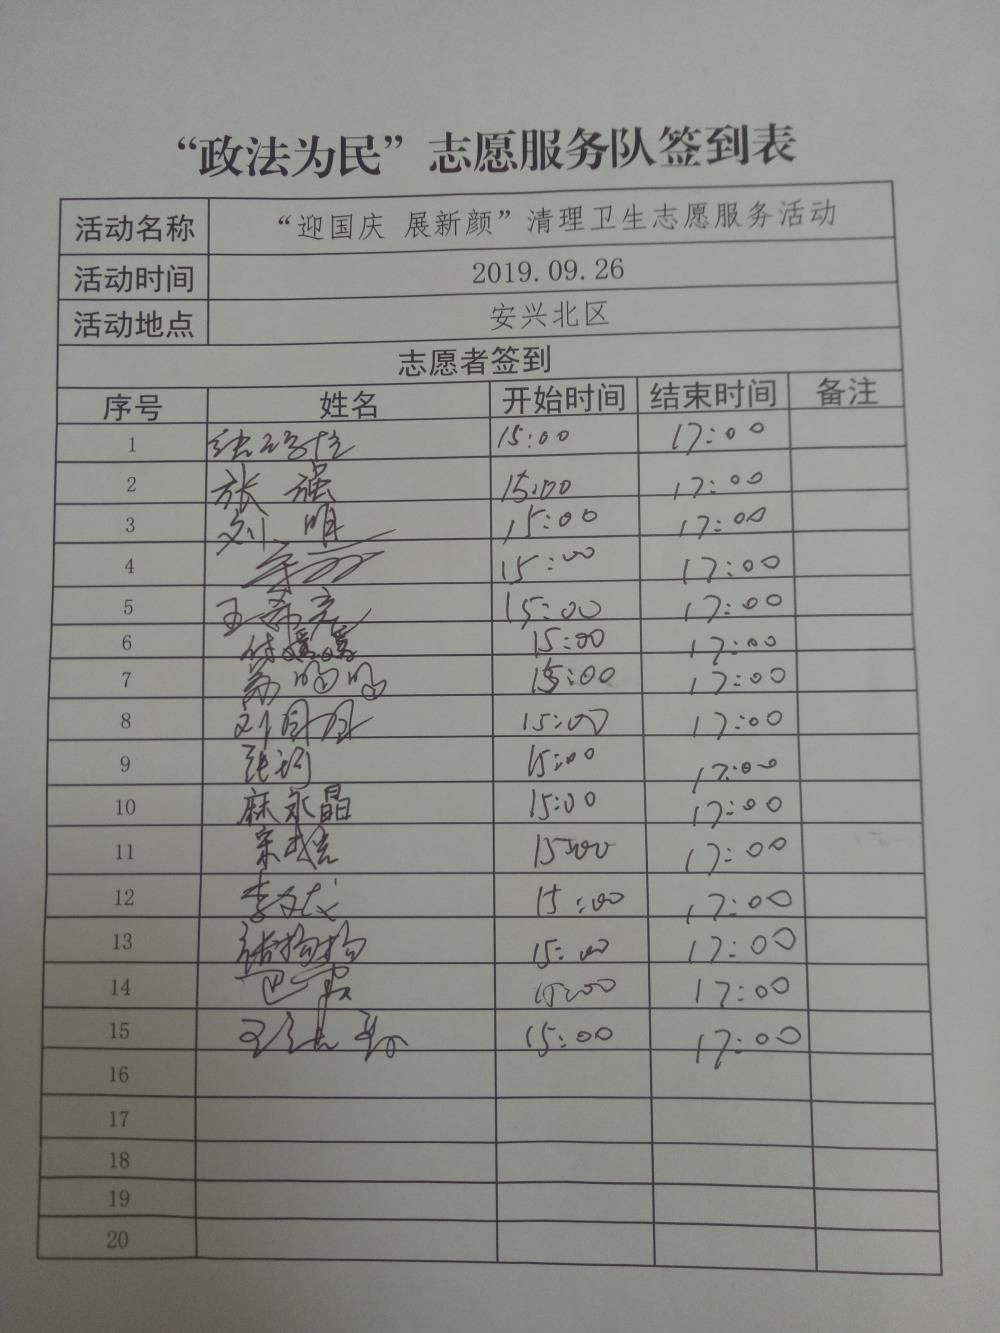 “政法为民”志愿服务队签到表
活动名称 “迎国庆 展新颜”清理卫生志愿服务活动
活动时间 2019.09.26
活动地点 安兴北区
志愿者签到
序号 姓名 开始时间 结束时间 备注
1 15:00 17:00
2 张强 15:00 17:00
3 刘明 15:00 17:00
4 15:00 17:00
5 王 15:00 17:00
6 付媛媛 15:00 17:00
7 15:00 17:00
8 刘丹丹 15:00 17:00
9 张 15:00 17:00
10 麻永晶 15:00 17:00
11 宋 15:00 17:00
12 李文 15:00 17:00
13 15:00 17:00
14 15:00 17:00
15 王 15:00 17:00
16
17
18
19
20